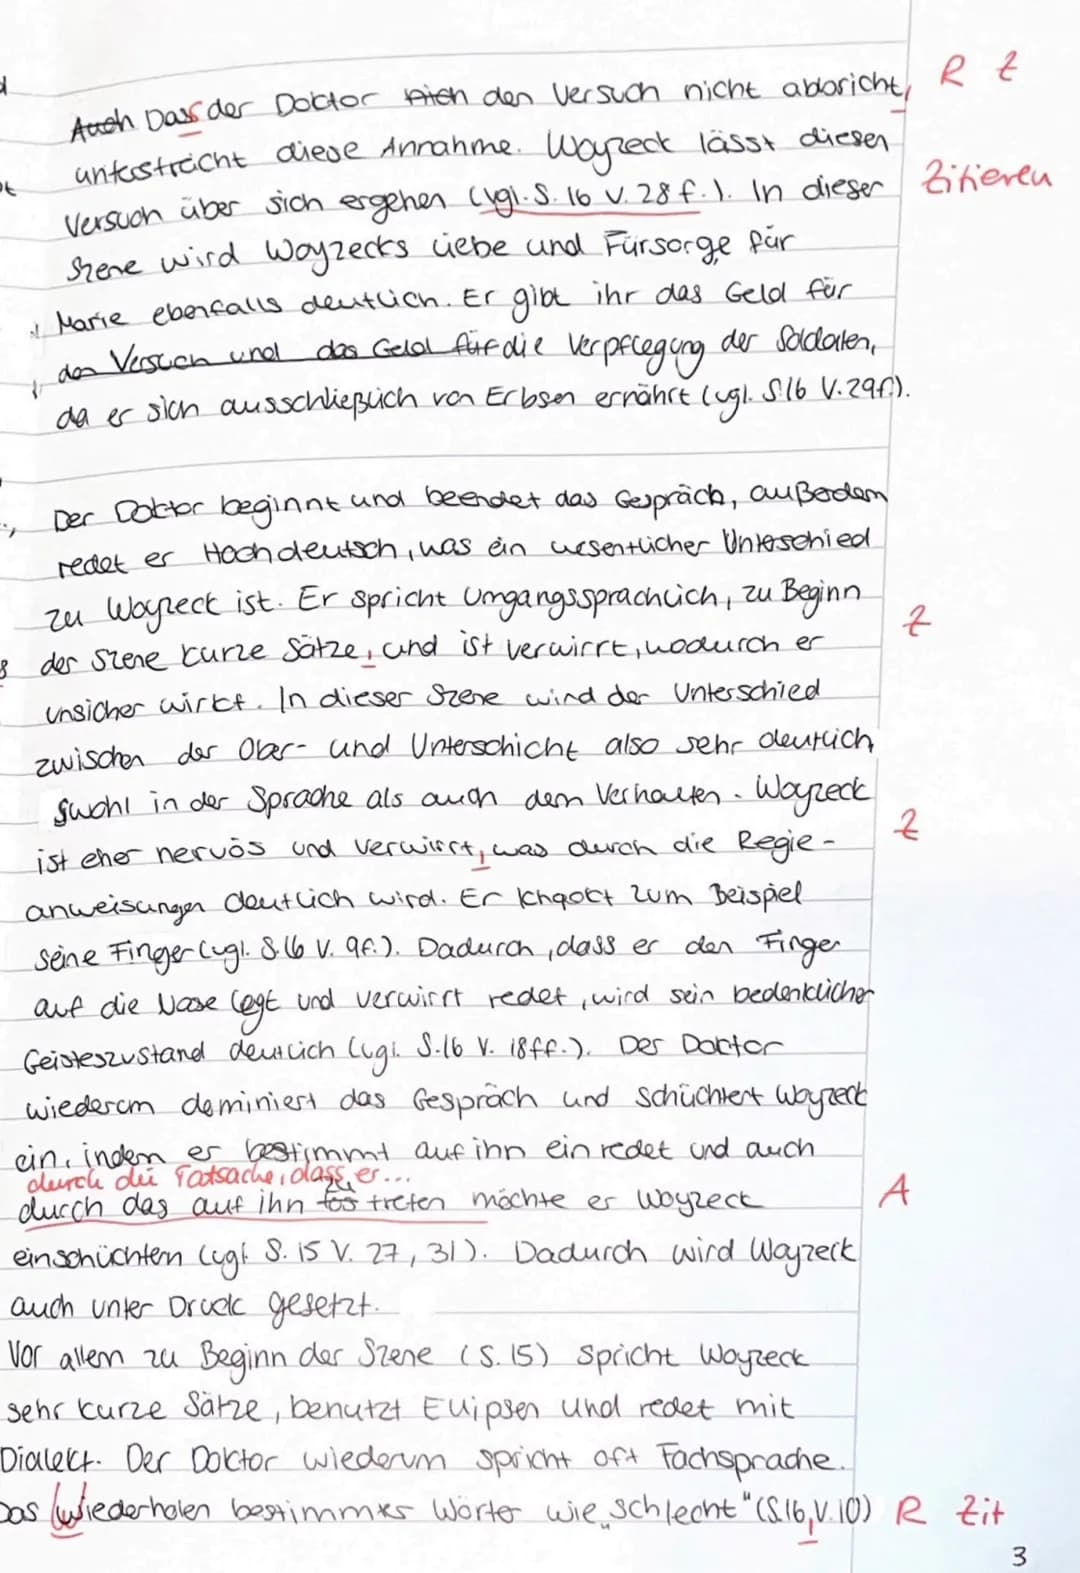 Auch Dass der Doktor sich den Versuch nicht abbricht, R Z
unterstreicht diese Annahme. Woyzeck lässt diesen
Versuch über sich ergehen (vgl. S. 16 V. 28 f.). In dieser Zitieren
Szene wird Woyzecks Liebe und Fürsorge für
Marie ebenfalls deutlich. Er gibt ihr das Geld für
den Versuch und das Geld für die Verpflegung der Soldaten,
da er sich ausschließlich von Erbsen ernährt (vgl. S.16 V.29f.).
Der Doktor beginnt und beendet das Gespräch, außerdem
redet er Hochdeutsch, was ein wesentlicher Unterschied
zu Woyzeck ist. Er spricht Umgangssprachlich, zu Beginn
der Szene kurze Sätze, und ist verwirrt, wodurch er Z
unsicher wirkt. In dieser Szene wird der Unterschied
zwischen der Ober- und Unterschicht also sehr deutlich,
swohl in der Sprache als auch dem Verhalten. Woyzeck
ist eher nervös und verwirrt, was durch die Regie- Z
anweisungen deutlich wird. Er knackt zum Beispiel
seine Finger (vgl. S.16 V. 9f.). Dadurch, dass er den Finger
auf die Nase legt und verwirrt redet, wird sein bedenklicher
Geisteszustand deutlich (vgl. S.16 V. 18ff.). Der Doktor
wiederum dominiert das Gespräch und schüchtert Woyzeck
ein, indem er bestimmt auf ihn ein redet und auch
durch die Tatsache, dass er...
durch das auf ihn zu treten möchte er Woyzeck A
einschüchtern (vgl. S. 15 V. 27, 31). Dadurch wird Woyzeck
auch unter Druck gesetzt.
Vor allem zu Beginn der Szene (S. 15) spricht Woyzeck
sehr kurze Sätze, benutzt Ellipsen und redet mit
Dialekt. Der Doktor wiederum spricht oft Fachsprache.
Das Wiederholen bestimmter Wörter wie „schlecht" (S.16, V.10) R Zit
3